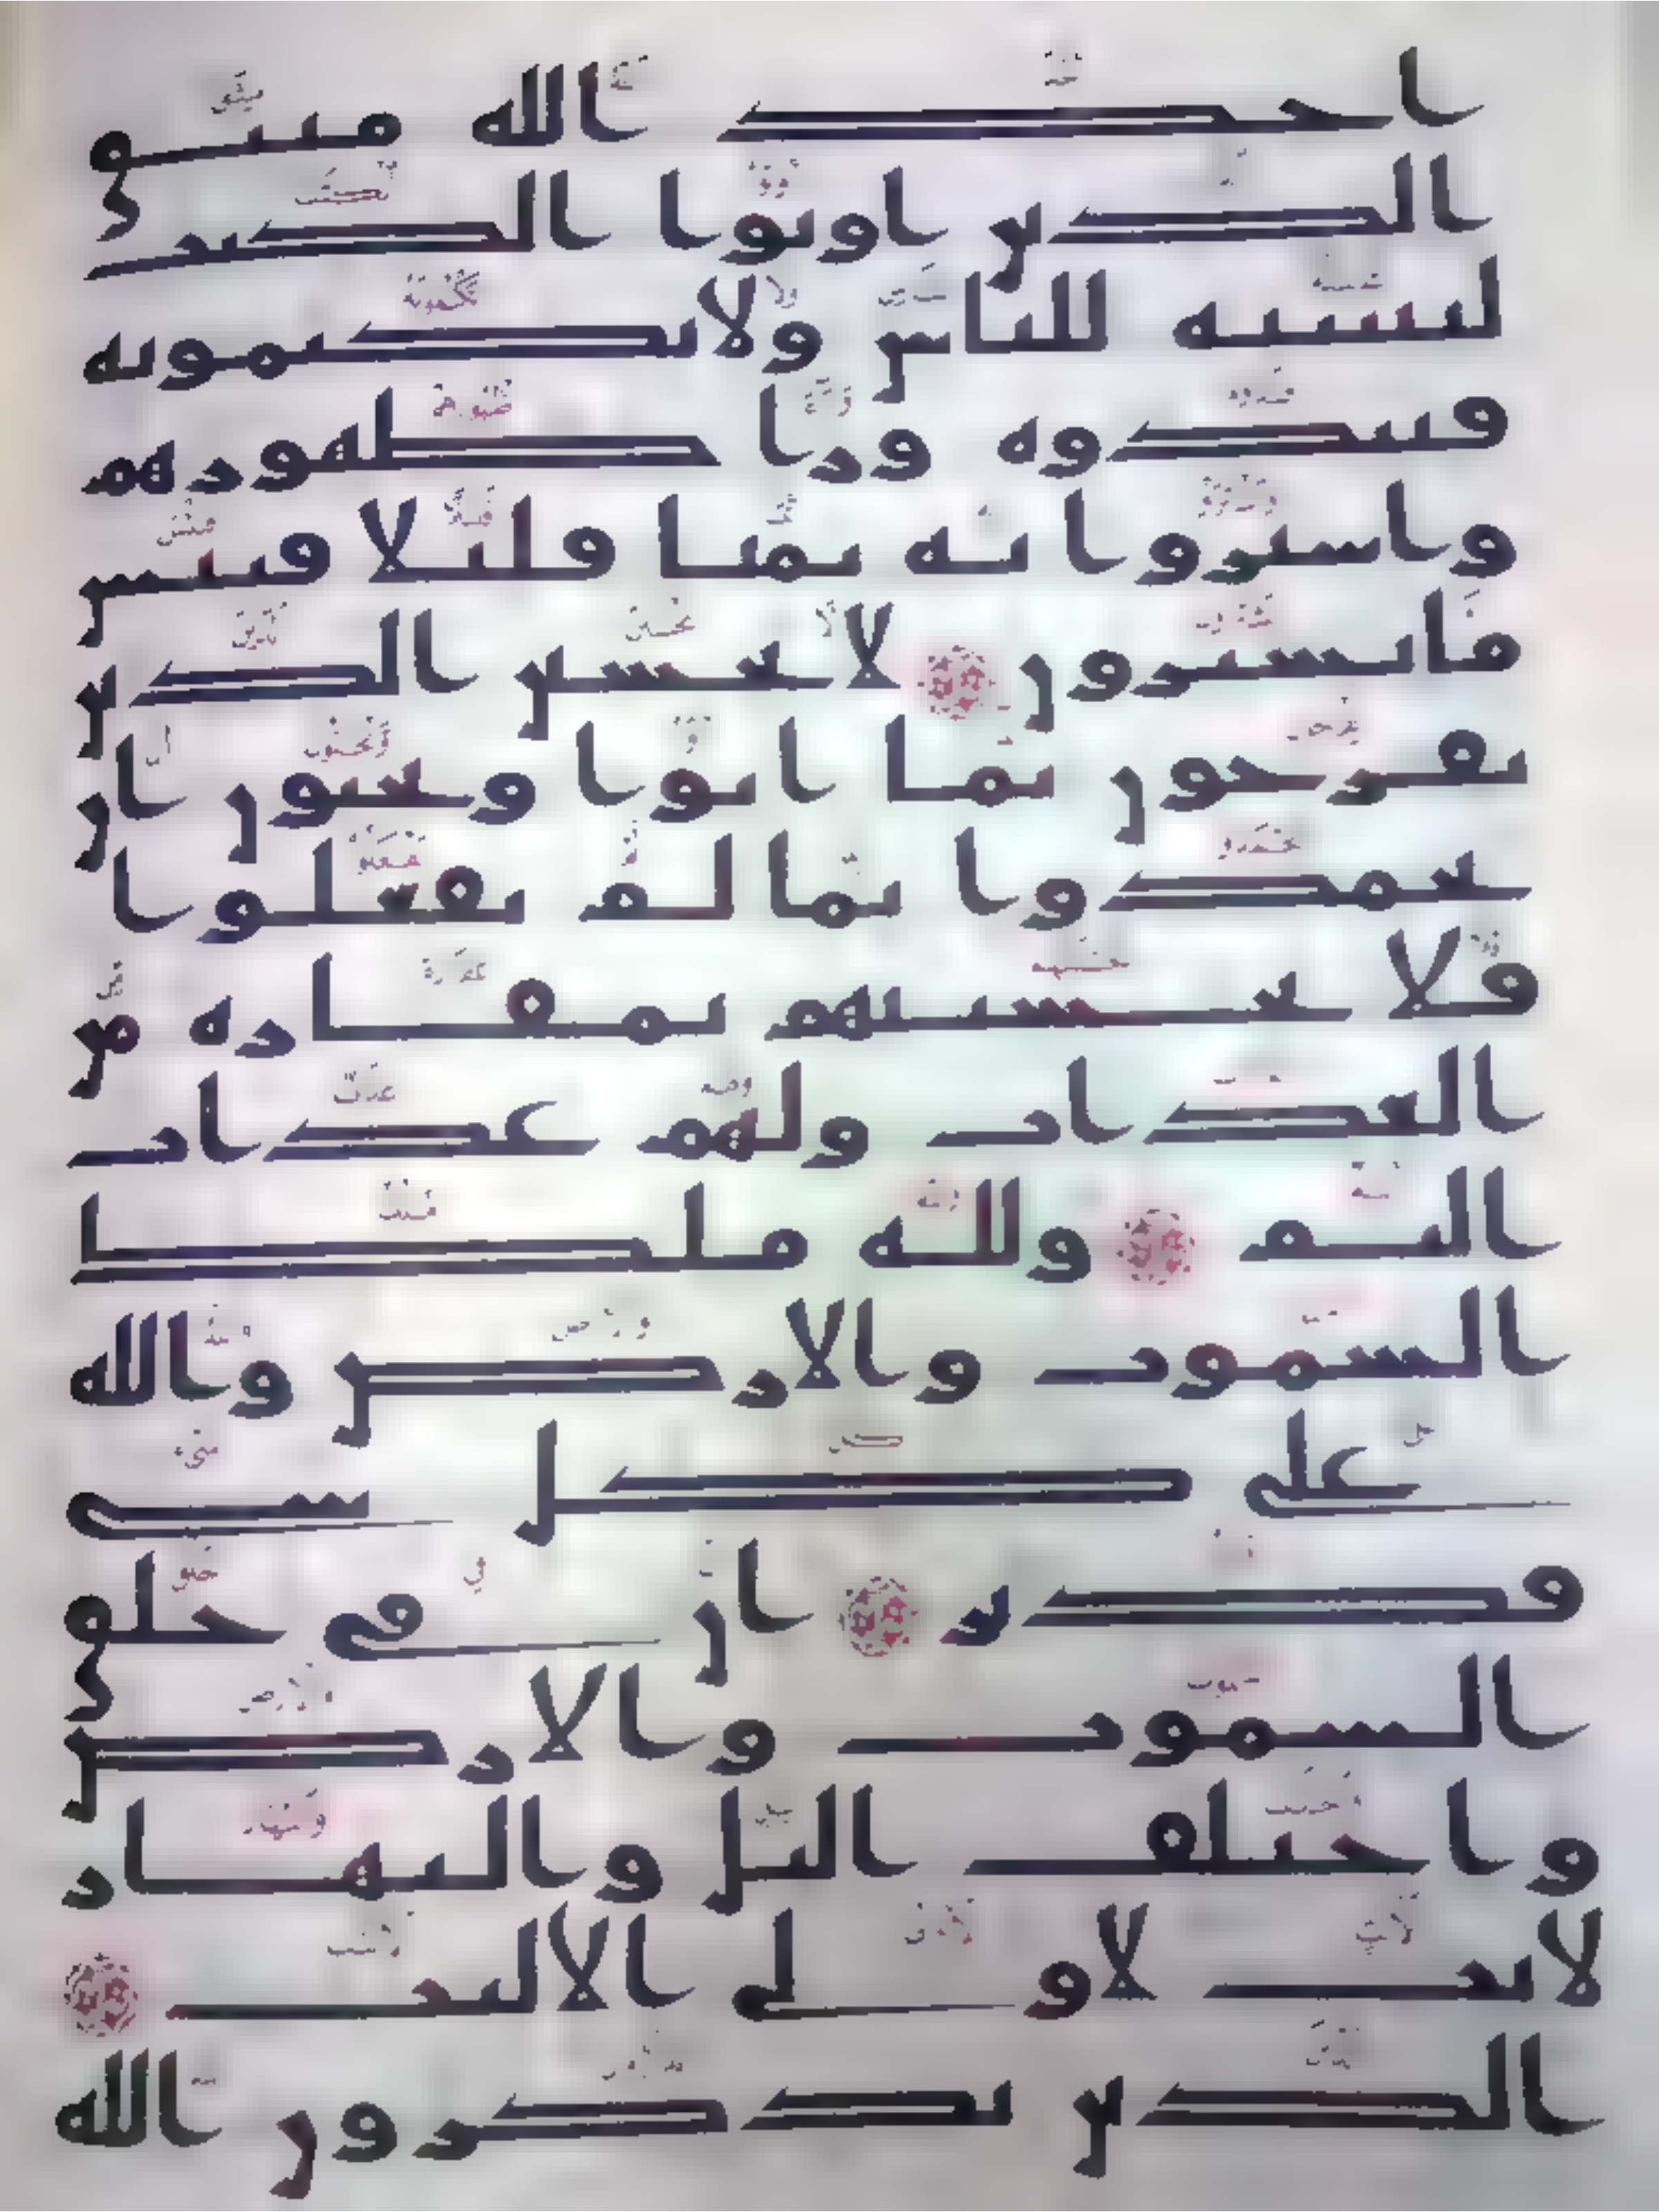 اخذ الله ميثق
الذين اوتوا الكتب
لتبيننه للناس ولا تكتمونه
فنبذوه ورا ظهورهم
واشتروا به ثمنا قليلا فبئس
ما يشترون لا تحسبن الذين
يفرحون بما اتوا ويحبون ان
يحمدوا بما لم يفعلوا
فلا تحسبنهم بمفازه من
العذاب ولهم عذاب
اليم ولله ملك
السموت والارض والله
على كل شي
قدير ان في خلق
السموت والارض
واختلف اليل والنهار
لايت لاولي الالبب
الذين يذكرون الله